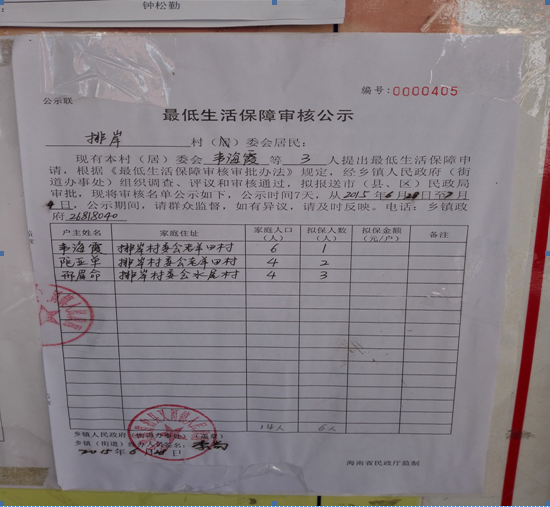 钟松勤
编号:0000405
公示联
最低生活保障审核公示
排岸 村(居)委会居民:
现有本村(居)委会 韦海霞 等 3 人提出最低生活保障申
请,根据《最低生活保障审核审批办法》规定,经乡镇人民政府(街
道办事处)组织调查、评议和审核通过,拟报送市(县、区)民政局
审批,现将审核名单公示如下,公示时间7天,从2015年6月 日至7
日,公示期间,请群众监督,如有异议,请及时反映。电话:乡镇政
府 26818040
户主姓名 家庭住址 家庭人口(人) 拟保人数(人) 拟保金额(元/户) 备注
韦海霞 排岸村委会老羊田村 6 1
陀亚单 排岸村委会老羊田村 4 2
排岸村委会水尾村 4 3
14人 6人
乡镇人民政府(街道办事处)(盖章)
乡镇(街道)经办人员签名:
2015年6月 日
海南省民政厅监制